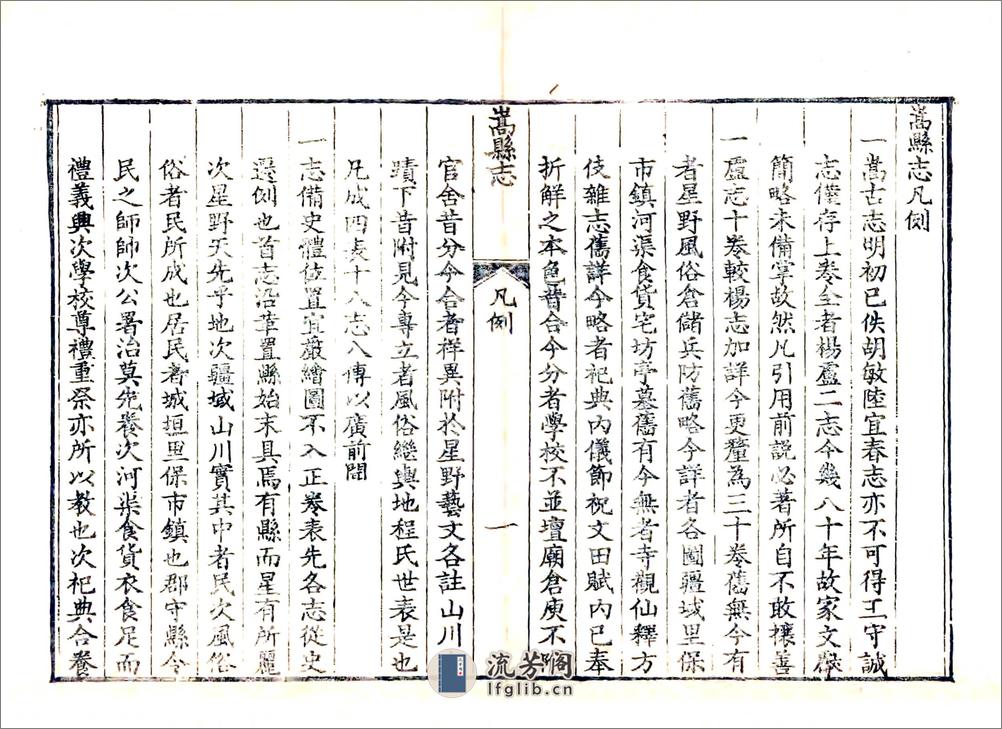 嵩縣志凡例
一嵩古志明初已佚胡敏陸宜春志亦不可得王守誠
志僅存上卷全者楊盧二志今幾八十年故家文獻
簡略未備寧故然凡引用前說必著所自不敢攘善
一盧志十卷較楊志加詳今更釐為三十卷舊無今有
者星野風俗倉儲兵防舊略今詳者各圖疆域里保
市鎮河渠食貨宅坊亭墓舊有今無者寺觀仙釋方
伎雜志舊詳今略者祀典內儀節祝文田賦內已奉
折解之本色昔合今分者學校不並壇廟倉庾不
嵩縣志
凡例
一
官舍昔分今合者祥異附於星野藝文各註山川
蹟下昔附見今專立者風俗繼輿地程氏世表是也
凡成四表十八志八傳以廣前聞
一志備史體位置宜嚴繪圖不入正卷表先各志從史
遷例也首志沿革置縣始末具焉有縣而星有所麗
次星野天先乎地次疆域山川實其中者民次風俗
俗者民所成也居民者城垣里保市鎮也郡守縣令
民之師帥次公署治莫先養次河渠食貨衣食足而
禮義興次學校尊禮重祭亦所以教也次祀典合養
流芳阁
lfglib.cn